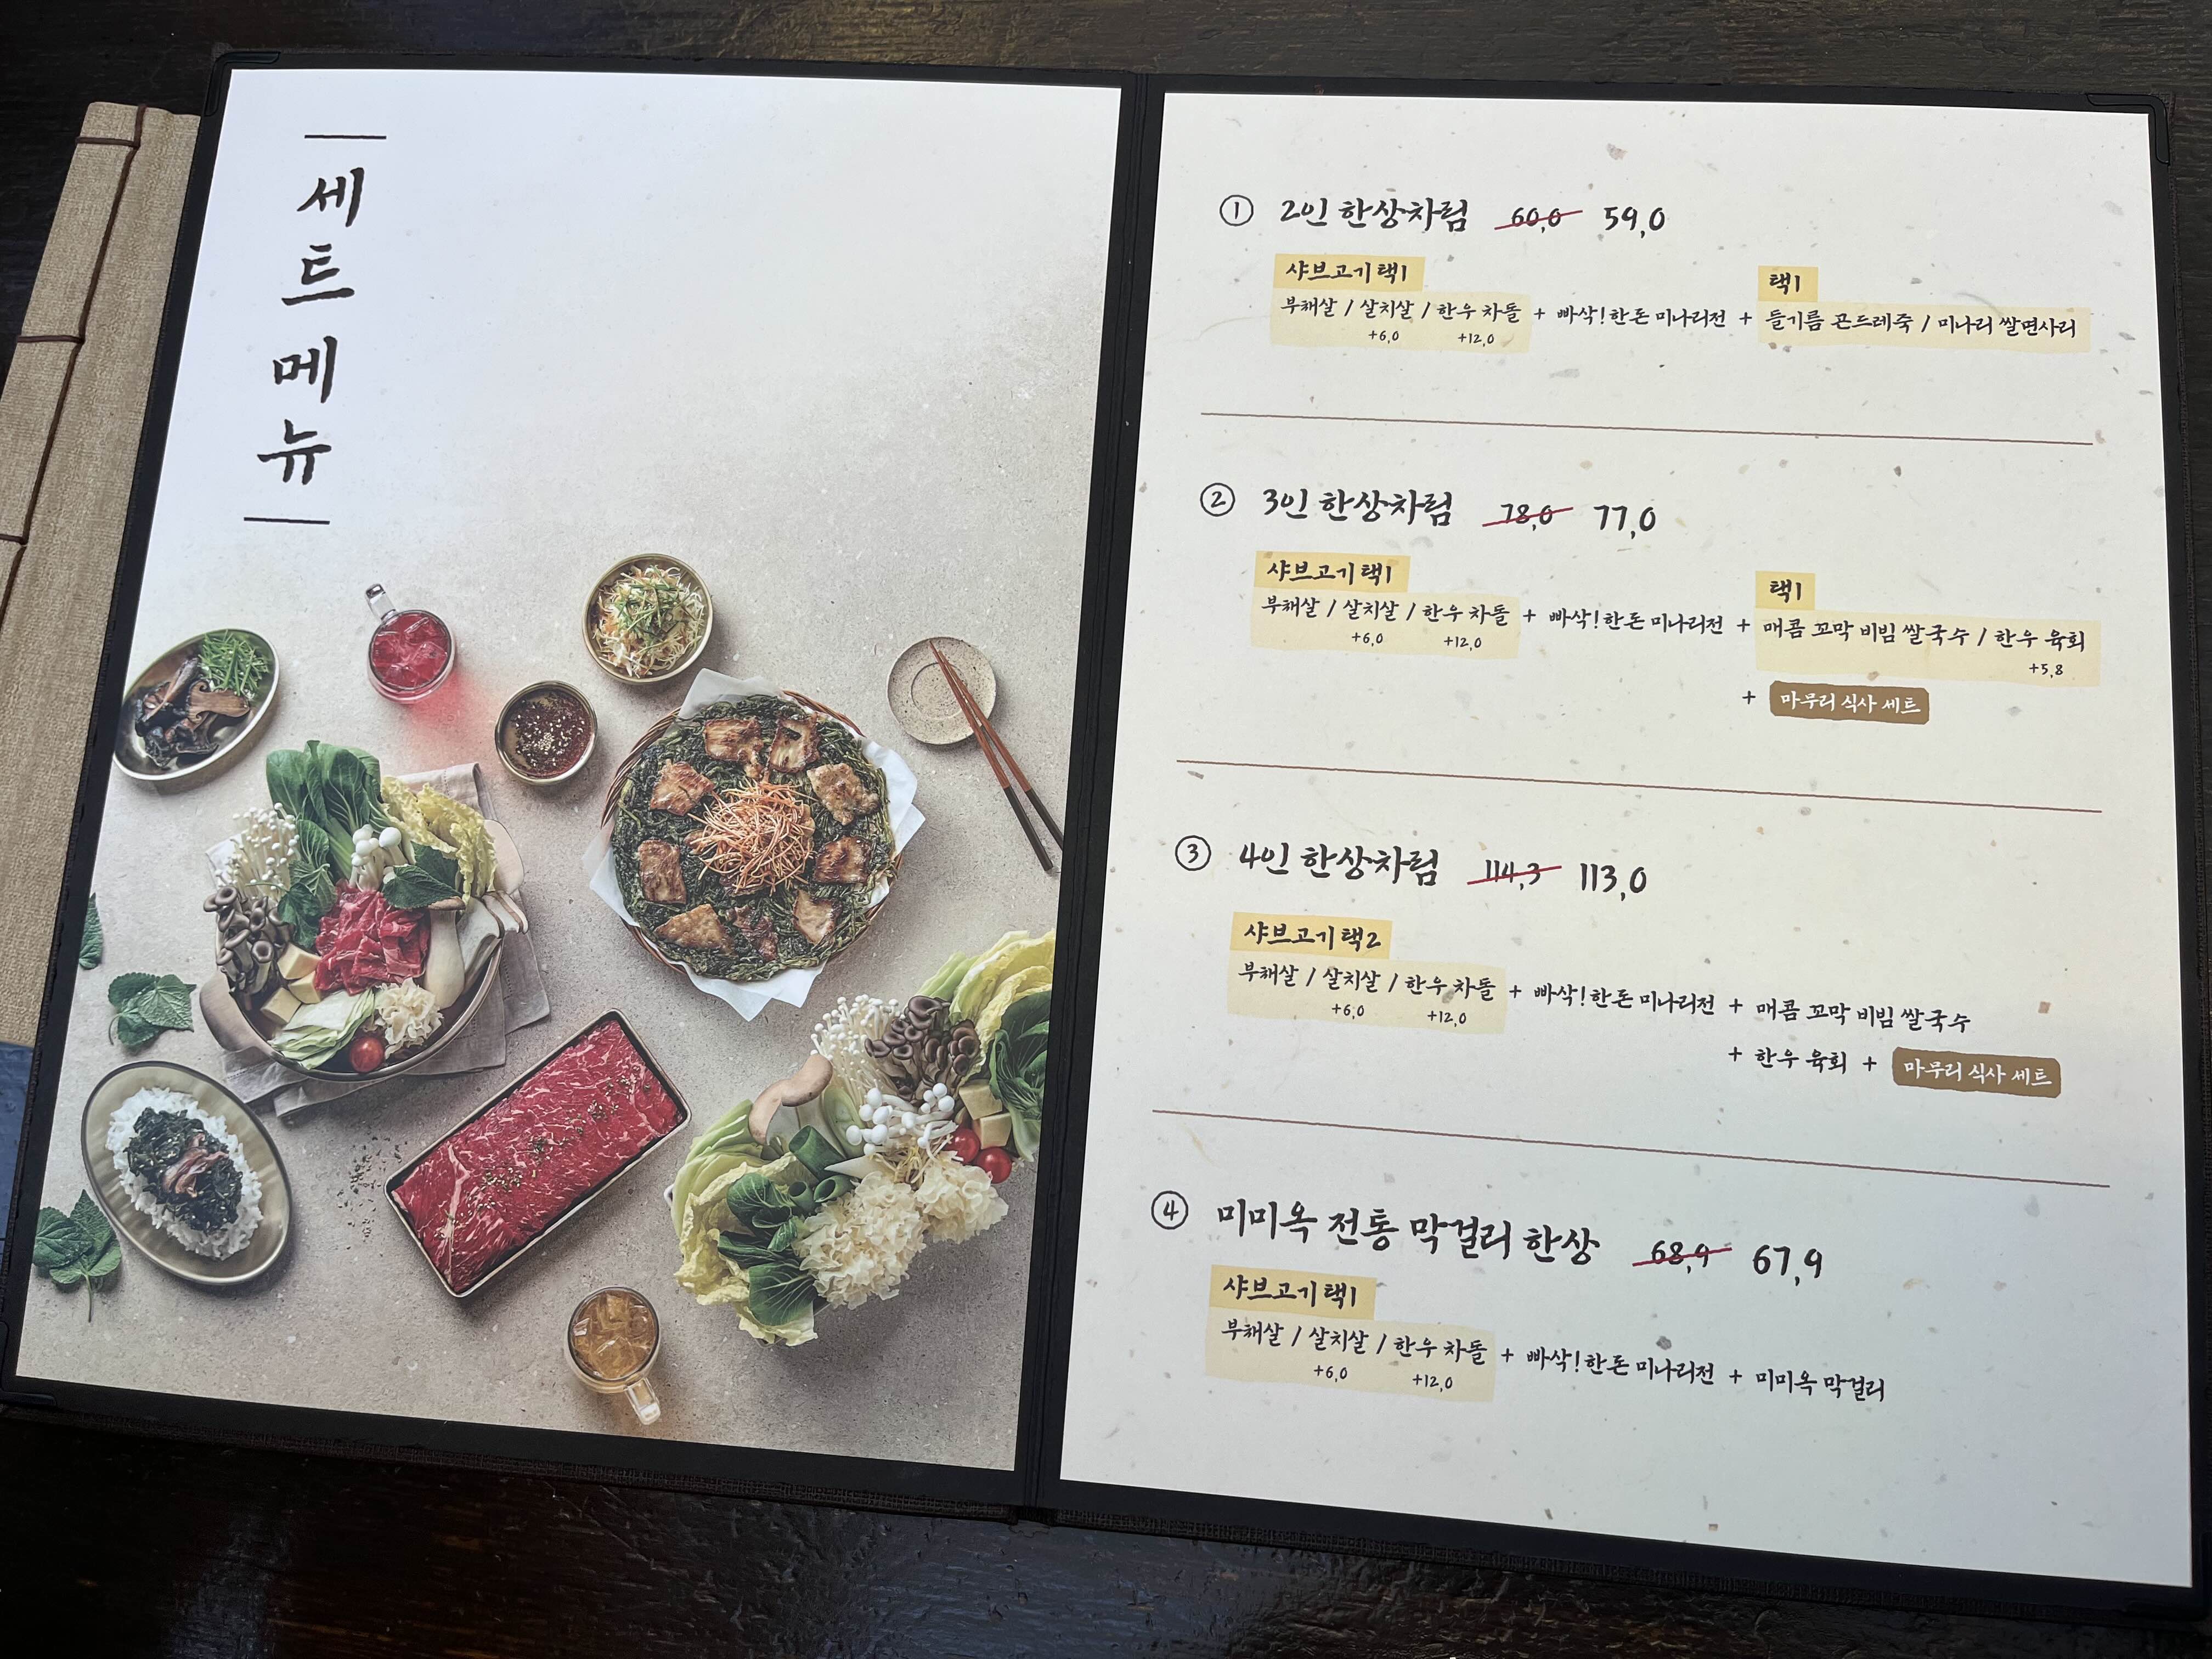 세트메뉴
① 2인 한상차림 60,0 59,0
샤브고기 택1 택1
부채살 / 살치살 / 한우 차돌 + 빠삭! 한돈 미나리전 + 들기름 곤드레죽 / 미나리 쌀면사리
+6,0 +12,0
② 3인 한상차림 78,0 77,0
샤브고기 택1 택1
부채살 / 살치살 / 한우 차돌 + 빠삭! 한돈 미나리전 + 매콤 꼬막 비빔 쌀국수 / 한우 육회
+6,0 +12,0 +5,8
+ 마무리 식사 세트
③ 4인 한상차림 114,3 113,0
샤브고기 택2
부채살 / 살치살 / 한우 차돌 + 빠삭! 한돈 미나리전 + 매콤 꼬막 비빔 쌀국수
+6,0 +12,0
+ 한우 육회 + 마무리 식사 세트
④ 미미옥 전통 막걸리 한상 68,9 67,9
샤브고기 택1
부채살 / 살치살 / 한우 차돌 + 빠삭! 한돈 미나리전 + 미미옥 막걸리
+6,0 +12,0